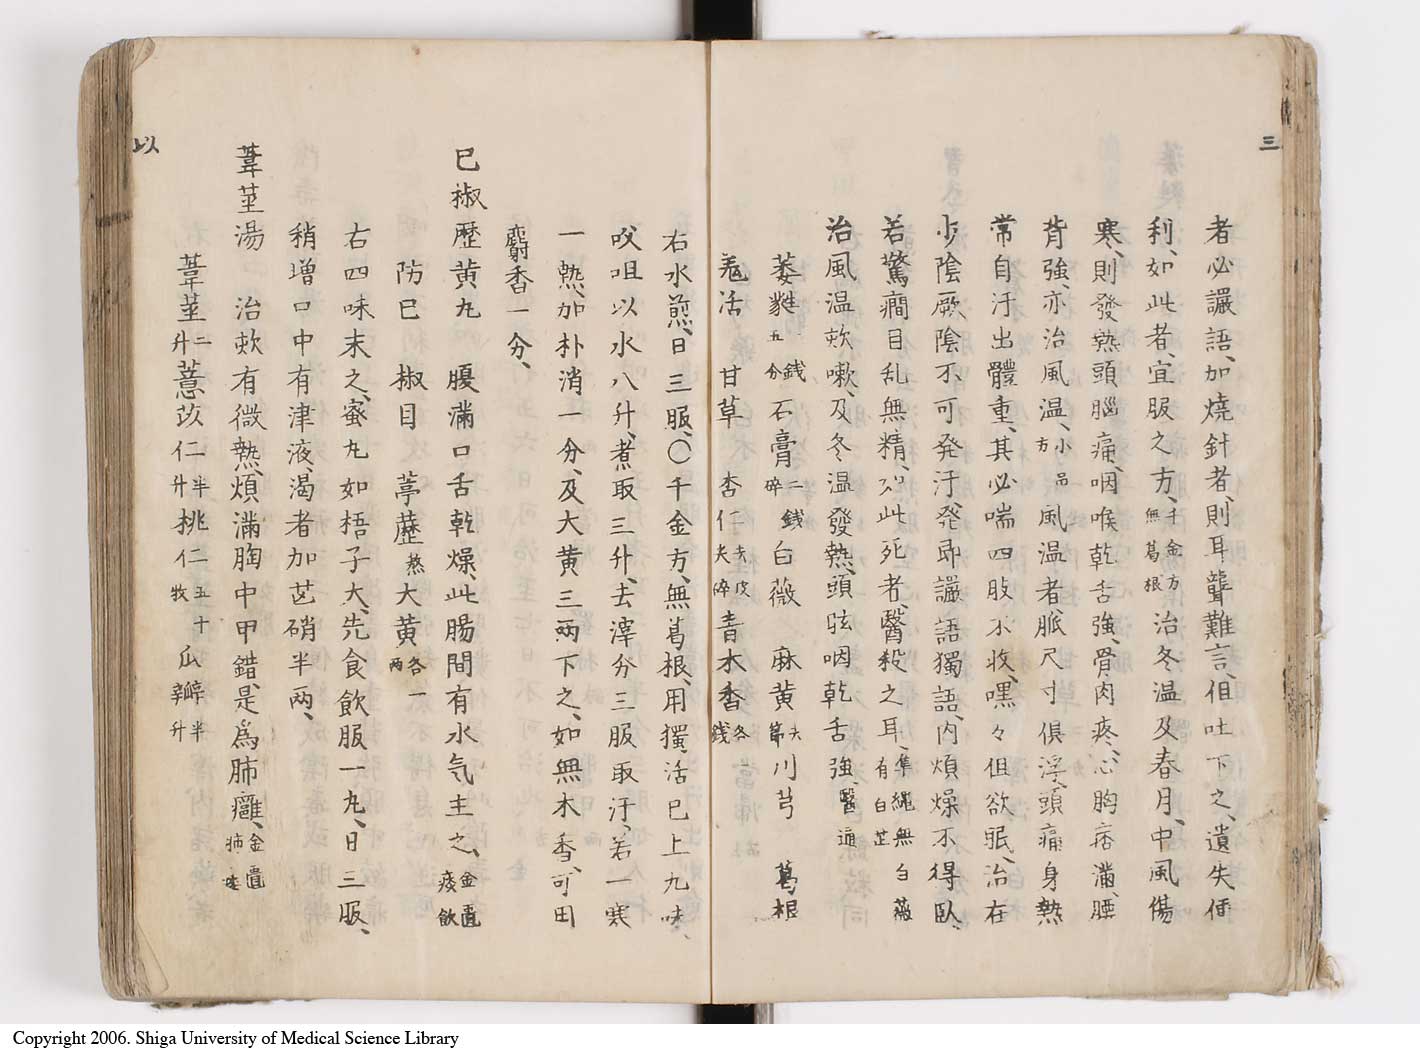 三
者必讝語、加燒針者、則耳聾難言、但吐下之、遺失便
利、如此者、宜服之方、千金方無葛根 治冬温及春月、中風傷
寒、則發熱頭腦痛、咽喉乾舌強、骨肉疼、心胸痞滿、腰
背強、亦治風温、小品方 風温者脈尺寸俱浮、頭痛身熱
常自汗出體重、其必喘四肢不收、嘿々但欲眠、治在
少陰厥陰不可発汗、発即讝語獨語、内煩燥不得臥、
若驚癇目乱無精、如此死者、醫殺之耳、集驗無白薇有白芷
治風温欬嗽、及冬温發熱、頭眩咽乾舌強、醫通
萎蕤五錢分 石膏二錢碎 白薇 麻黄 川芎 葛根
羗活 甘草 杏仁去皮尖碎 青木香各錢
右水煎、日三服、〇千金方、無葛根、用獨活已上九味、
㕮咀以水八升、煮取三升、去滓分三服取汗、若一寒
一熱、加朴消一分、及大黄三両下之、如無木香、可用
麝香一分、
已椒歴黄丸 腹滿口舌乾燥、此腸間有水気主之、金匱痰飲
防已 椒目 葶藶熬 大黄各一両
右四味末之、蜜丸如梧子大、先食飲服一丸、日三服、
稍增口中有津液、渇者加芒硝半両、
葦莖湯 治欬有微熱、煩滿胸中甲錯、是爲肺癰、金匱肺痿
葦莖二升 薏苡仁半升 桃仁五十枚 瓜瓣半升
以
Copyright 2006. Shiga University of Medical Science Library